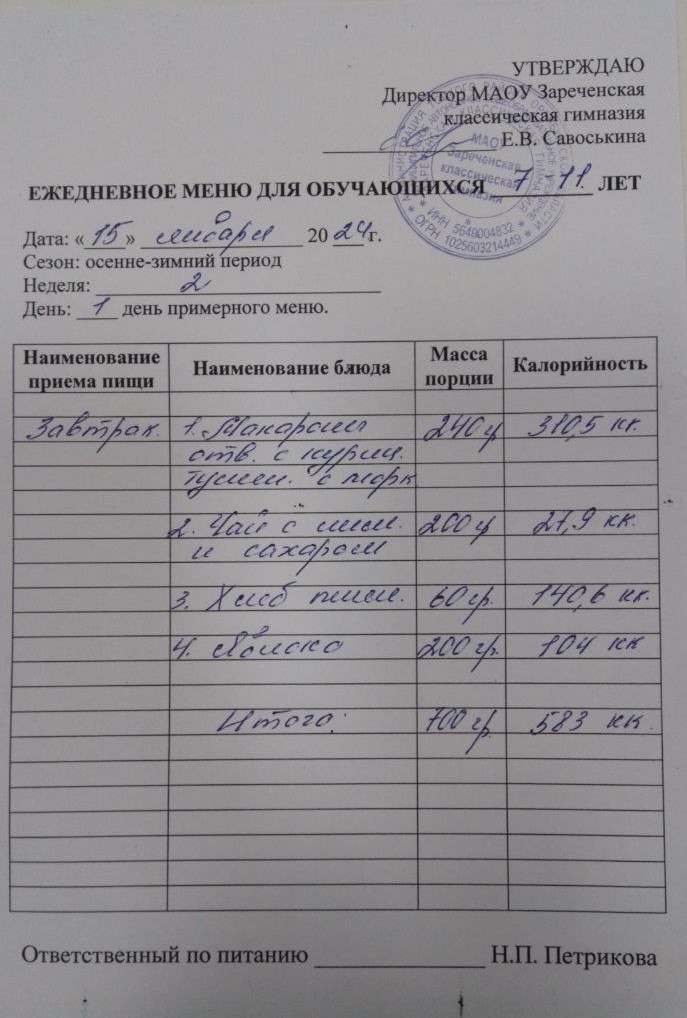 УТВЕРЖДАЮ
Директор МАОУ Зареченская
классическая гимназия
Е.В. Савоськина
МАОУ
Зареченская
классическая
гимназия
* ИНН 5649004832 *
* ОГРН 1025603214449 *
ЕЖЕДНЕВНОЕ МЕНЮ ДЛЯ ОБУЧАЮЩИХСЯ 7-11 ЛЕТ
Дата: « 15 » января 20 24 г.
Сезон: осенне-зимний период
Неделя: 2
День: 1 день примерного меню.
Наименование приема пищи Наименование блюда Масса порции Калорийность
Завтрак. 1. Макароны 240 гр 310,5 кк.
отв. с куриц.
тушен. с морк
2. Чай с лим. 200 гр 27,9 кк.
и сахаром
3. Хлеб пшен. 60 гр. 140,6 кк.
4. Яблоко 200 гр. 104 кк
Итого: 700 гр. 583 кк.
Ответственный по питанию Н.П. Петрикова